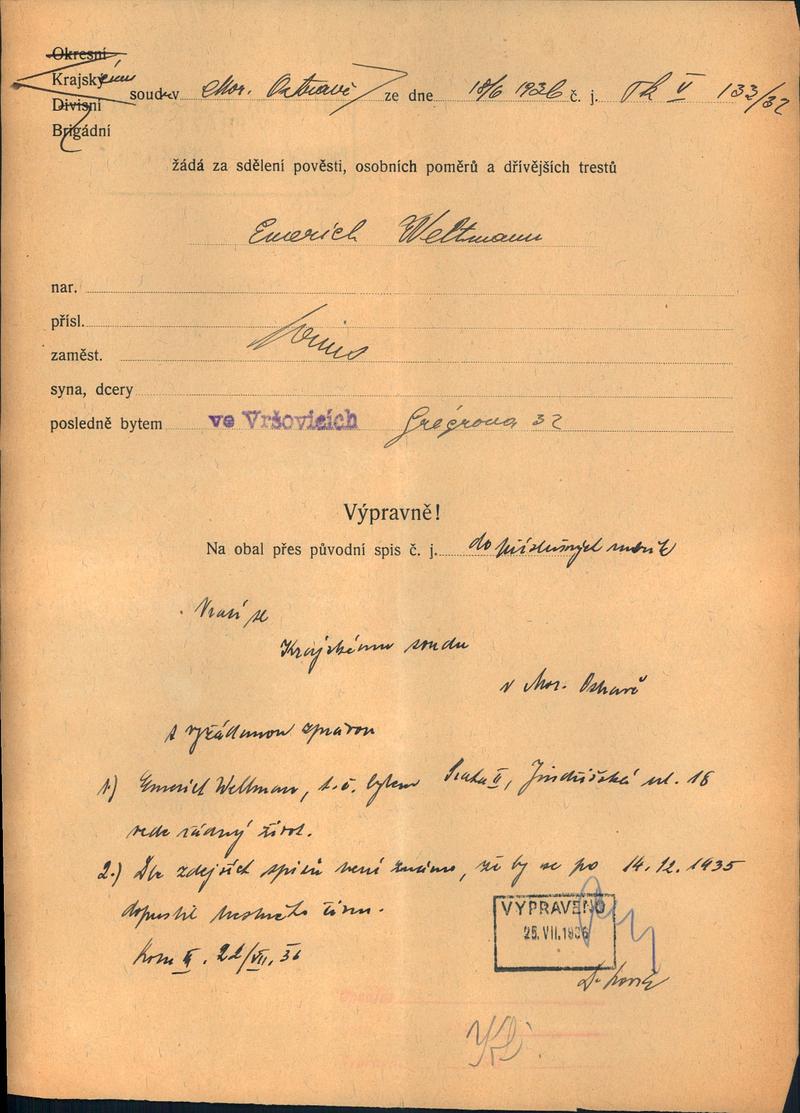 Okresní
Krajskému
Divisní
Brigádní
soud v Mor. Ostravě ze dne 18/6 1936 č. j. Tk V 133/32
žádá za sdělení pověsti, osobních poměrů a dřívějších trestů
Emerich Weltmann
nar.
přísl.
zaměst.
syna, dcery
posledně bytem ve Vršovicích Grégrova 32
Výpravně!
Na obal přes původní spis č. j. do příslušných rubrik
Vrací se
Krajskému soudu
v Mor. Ostravě
s vyžádanou zprávou
1.) Emerich Weltman, t. č. bytem Praha II, Jindřišská ul. 18
vede řádný život.
2.) Dle zdejších spisů není známo, že by se po 14. 12. 1935
dopustil trestného činu.
Kom II. 22/VII. 36
VYPRAVENO
25. VII. 1936